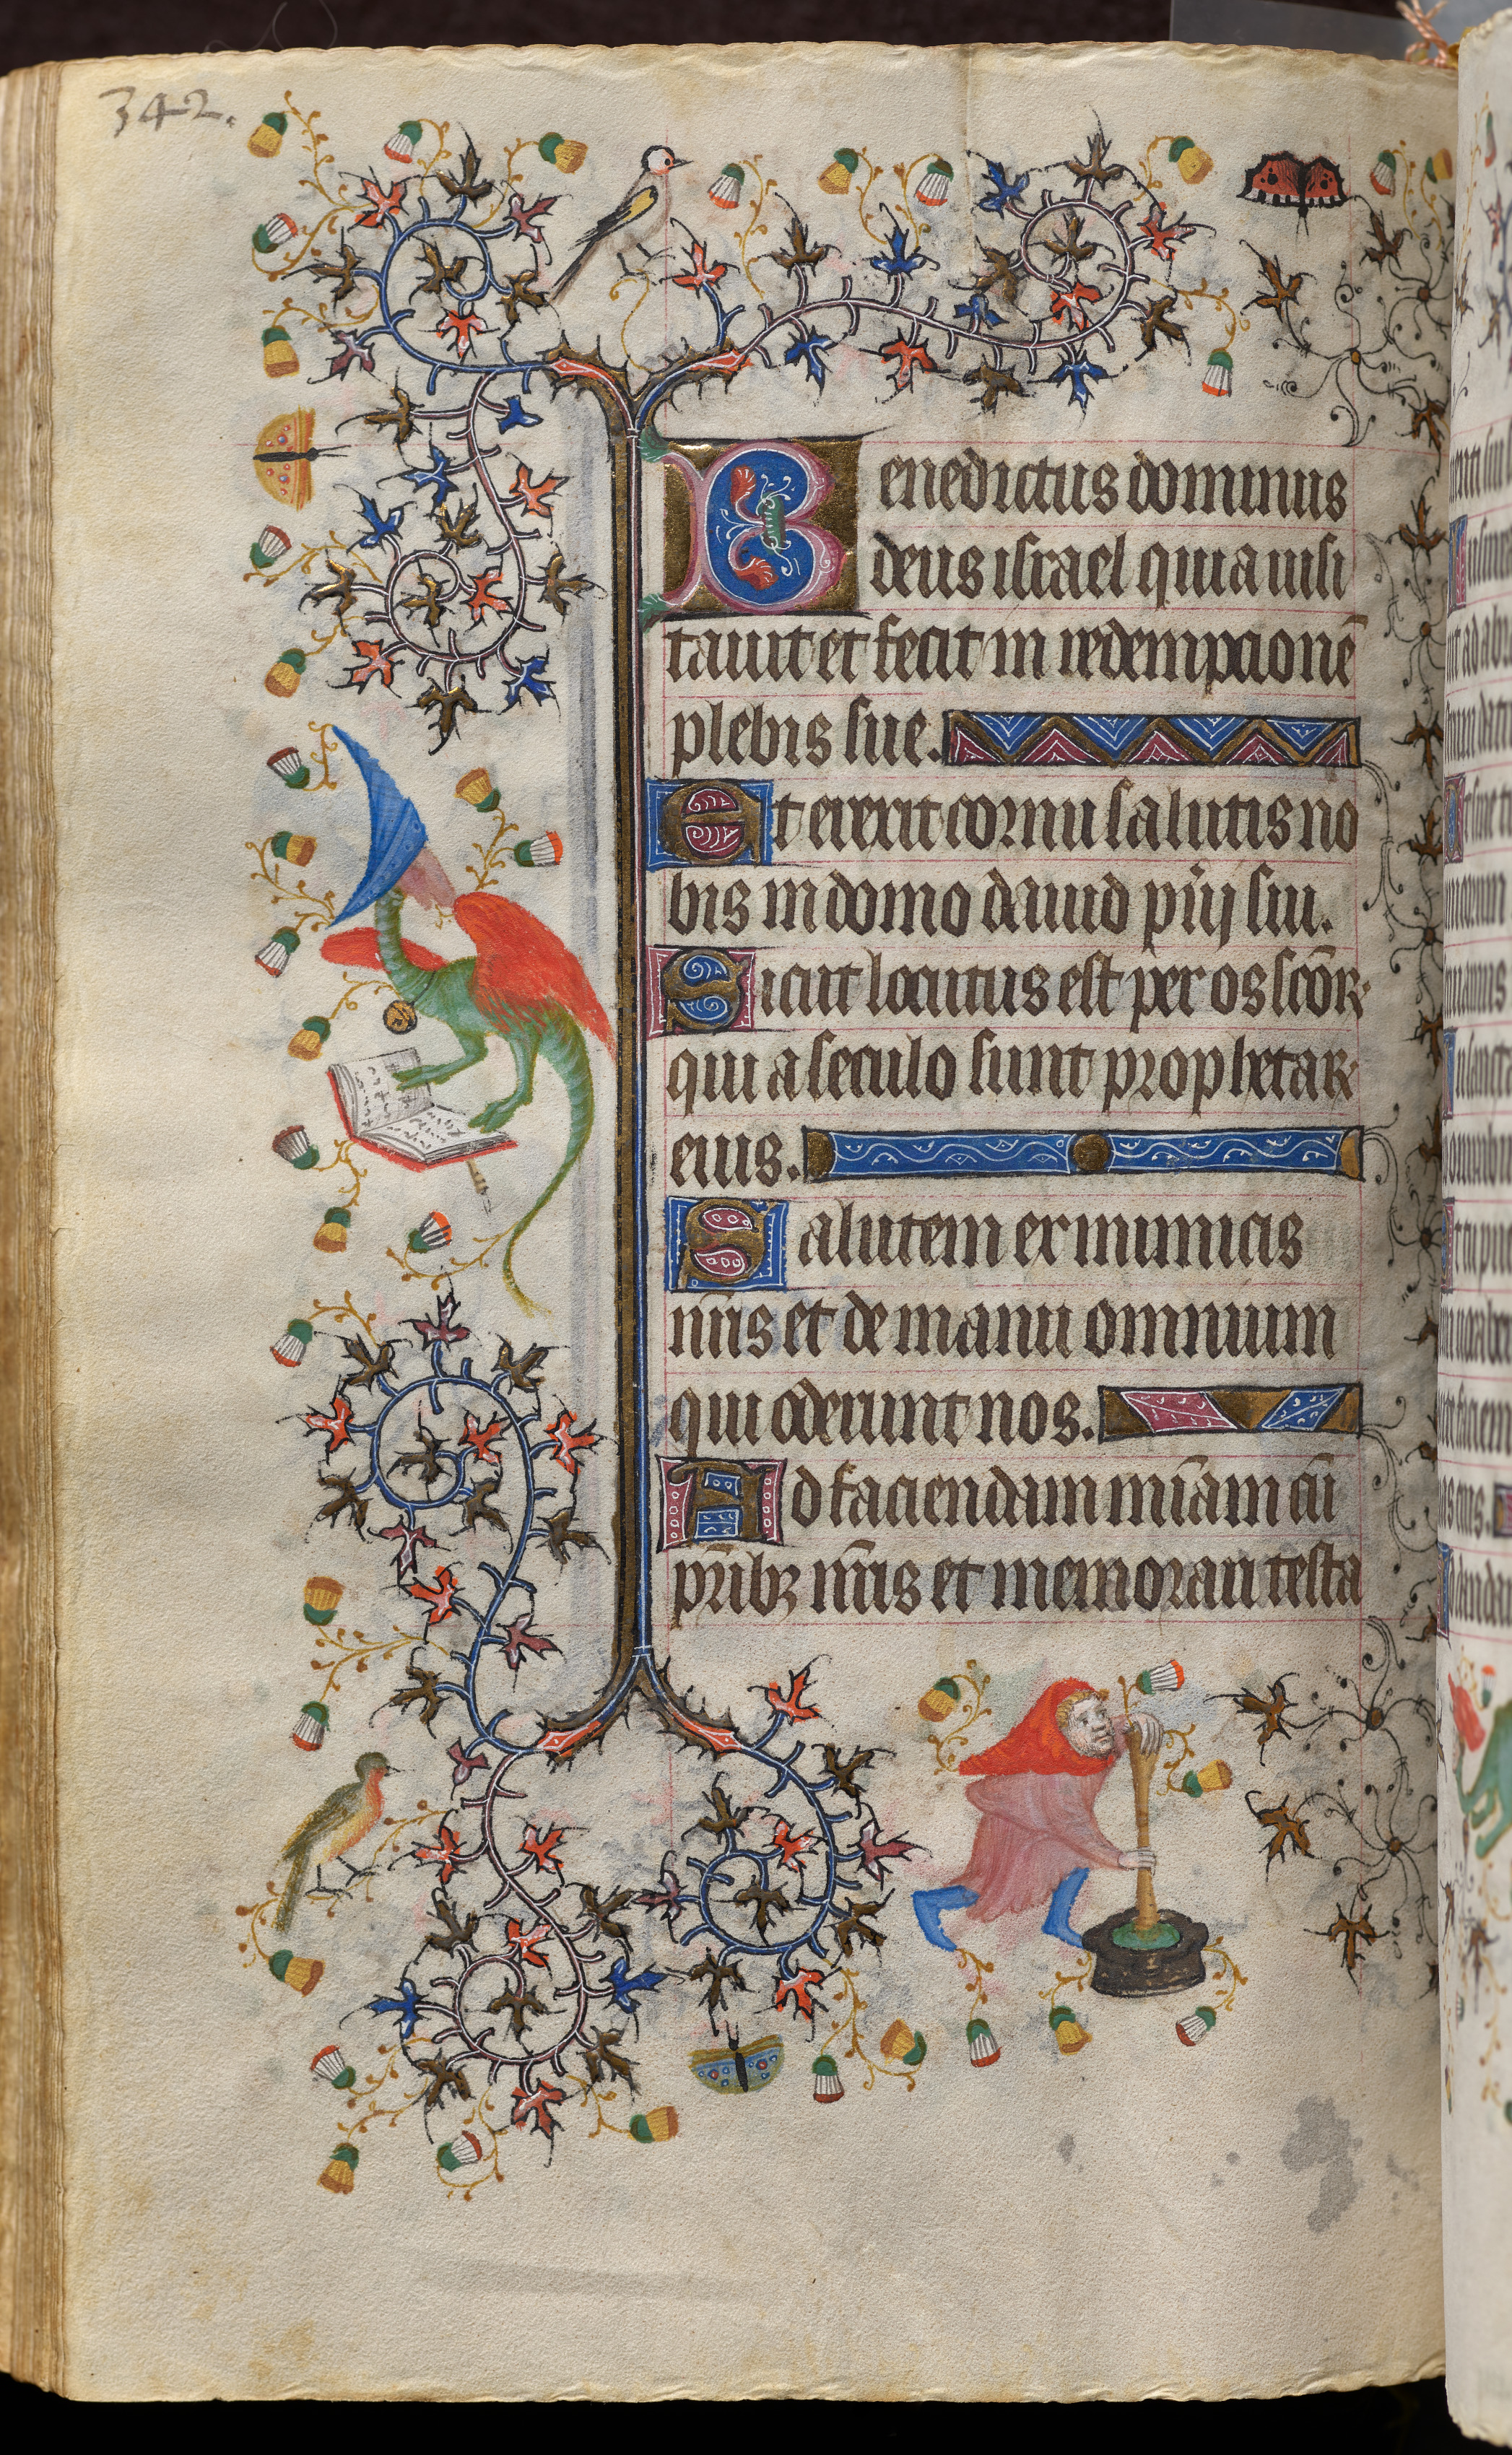 342.
Benedictus dominus
deus israel quia uisi
tauit et fecit in redempcionē
plebis sue.
Et erexit cornu salutis no
bis in domo dauid pūij sui.
Sicut locutus est per os scōꝝ
qui a seculo sunt prophetaꝝ
eius.
Salutem ex inimicis
nr̄is et de manu omnium
qui oderunt nos.
Ad faciendam mīam cū
pr̄ibꝫ nr̄is et memorari testa